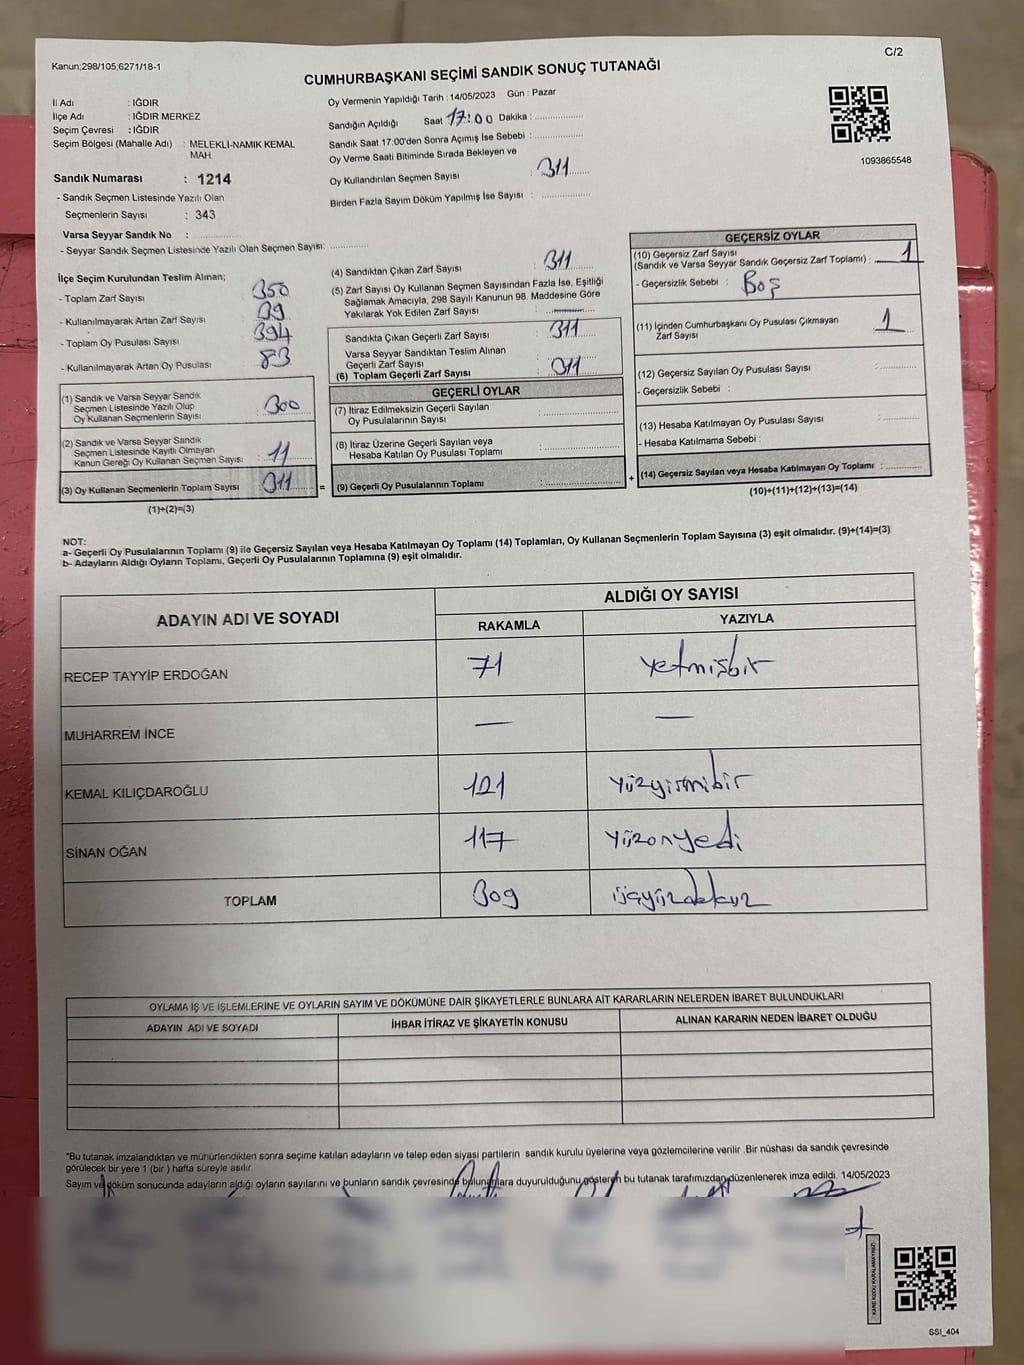 Kanun;298/105,6271/18-1
C/2
CUMHURBAŞKANI SEÇİMİ SANDIK SONUÇ TUTANAĞI
İl Adı : IĞDIR
İlçe Adı : IĞDIR MERKEZ
Seçim Çevresi : IĞDIR
Seçim Bölgesi (Mahalle Adı) : MELEKLİ-NAMIK KEMAL MAH.
Sandık Numarası : 1214
- Sandık Seçmen Listesinde Yazılı Olan
Seçmenlerin Sayısı : 343
Varsa Seyyar Sandık No :
- Seyyar Sandık Seçmen Listesinde Yazılı Olan Seçmen Sayısı:
Oy Vermenin Yapıldığı Tarih : 14/05/2023 Gün : Pazar
Sandığın Açıldığı Saat 17:00 Dakika :
Sandık Saat 17:00'den Sonra Açımış İse Sebebi :
Oy Verme Saati Bitiminde Sırada Bekleyen ve
Oy Kullandırılan Seçmen Sayısı : 311
Birden Fazla Sayım Döküm Yapılmış İse Sayısı :
1093865548
İlçe Seçim Kurulundan Teslim Alınan;
- Toplam Zarf Sayısı 350
- Kullanılmayarak Artan Zarf Sayısı 39
- Toplam Oy Pusulası Sayısı 394
- Kullanılmayarak Artan Oy Pusulası 83
(1) Sandık ve Varsa Seyyar Sandık
Seçmen Listesinde Yazılı Olup
Oy Kullanan Seçmenlerin Sayısı : 300
(2) Sandık ve Varsa Seyyar Sandık
Seçmen Listesinde Kayıtlı Olmayan
Kanun Gereği Oy Kullanan Seçmen Sayısı : 11
(3) Oy Kullanan Seçmenlerin Toplam Sayısı : 311 =
(1)+(2)=(3)
(4) Sandıktan Çıkan Zarf Sayısı : 311
(5) Zarf Sayısı Oy Kullanan Seçmen Sayısından Fazla İse, Eşitliği
Sağlamak Amacıyla, 298 Sayılı Kanunun 98. Maddesine Göre
Yakılarak Yok Edilen Zarf Sayısı : —
Sandıkta Çıkan Geçerli Zarf Sayısı : 311
Varsa Seyyar Sandıktan Teslim Alınan
Geçerli Zarf Sayısı
(6) Toplam Geçerli Zarf Sayısı : 311
GEÇERLİ OYLAR
(7) İtiraz Edilmeksizin Geçerli Sayılan
Oy Pusulalarının Sayısı :
(8) İtiraz Üzerine Geçerli Sayılan veya
Hesaba Katılan Oy Pusulası Toplamı :
(9) Geçerli Oy Pusulalarının Toplamı : +
GEÇERSİZ OYLAR
(10) Geçersiz Zarf Sayısı
(Sandık ve Varsa Seyyar Sandık Geçersiz Zarf Toplamı) : 1
- Geçersizlik Sebebi : Boş
(11) İçinden Cumhurbaşkanı Oy Pusulası Çıkmayan
Zarf Sayısı : 1
(12) Geçersiz Sayılan Oy Pusulası Sayısı :
- Geçersizlik Sebebi :
(13) Hesaba Katılmayan Oy Pusulası Sayısı :
- Hesaba Katılmama Sebebi :
(14) Geçersiz Sayılan veya Hesaba Katılmayan Oy Toplamı :
(10)+(11)+(12)+(13)=(14)
NOT:
a- Geçerli Oy Pusulalarının Toplamı (9) ile Geçersiz Sayılan veya Hesaba Katılmayan Oy Toplamı (14) Toplamları, Oy Kullanan Seçmenlerin Toplam Sayısına (3) eşit olmalıdır. (9)+(14)=(3)
b- Adayların Aldığı Oyların Toplamı, Geçerli Oy Pusulalarının Toplamına (9) eşit olmalıdır.
ADAYIN ADI VE SOYADI
ALDIĞI OY SAYISI
RAKAMLA YAZIYLA
RECEP TAYYİP ERDOĞAN 71 yetmişbir
MUHARREM İNCE — —
KEMAL KILIÇDAROĞLU 121 yüzyirmibir
SİNAN OĞAN 117 yüzonyedi
TOPLAM 309 üçyüzdokuz
OYLAMA İŞ VE İŞLEMLERİNE VE OYLARIN SAYIM VE DÖKÜMÜNE DAİR ŞİKAYETLERLE BUNLARA AİT KARARLARIN NELERDEN İBARET BULUNDUKLARI
ADAYIN ADI VE SOYADI İHBAR İTİRAZ VE ŞİKAYETİN KONUSU ALINAN KARARIN NEDEN İBARET OLDUĞU
*Bu tutanak imzalandıktan ve mühürlendikten sonra seçime katılan adayların ve talep eden siyasi partilerin sandık kurulu üyelerine veya gözlemcilerine verilir .Bir nüshası da sandık çevresinde
görülecek bir yere 1 (bir ) hafta süreyle asılır.
Sayım ve döküm sonucunda adayların aldığı oyların sayılarını ve bunların sandık çevresinde bulunanlara duyurulduğunu gösteren bu tutanak tarafımızdan düzenlenerek imza edildi. 14/05/2023
KARE KODU KARALAMAYINIZ!
SSI_404